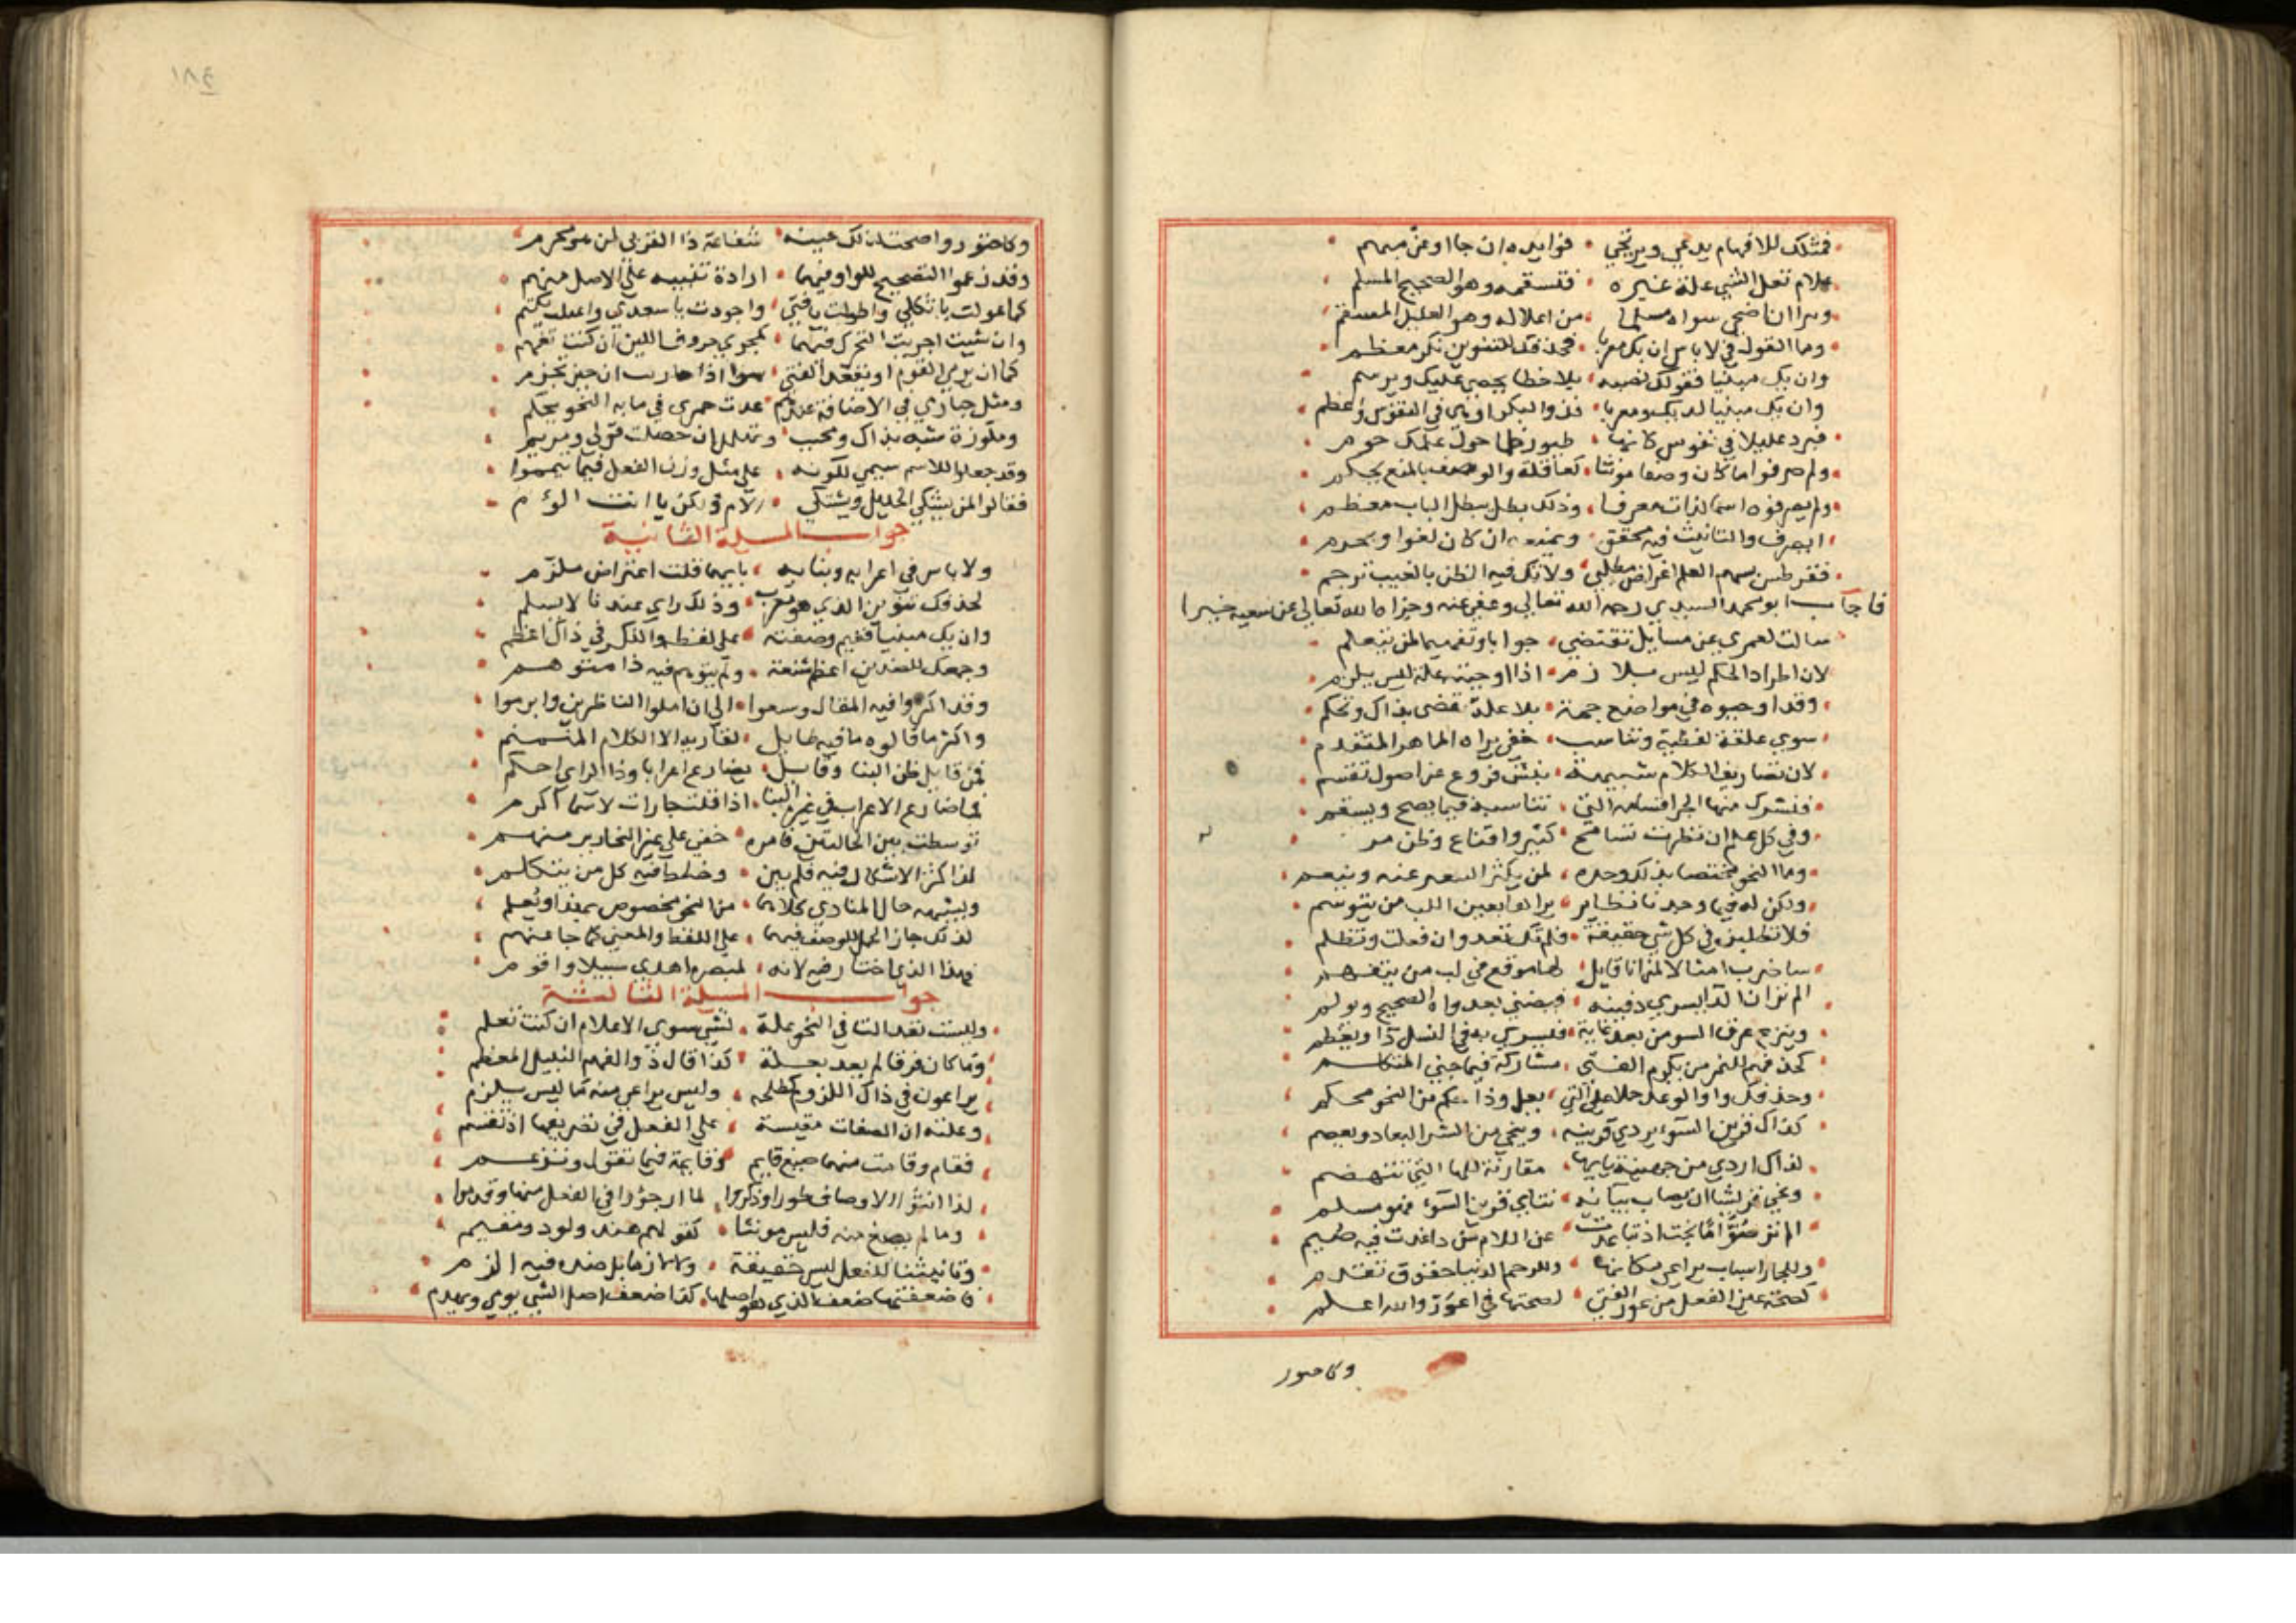 فمثلك للافهام يدعي ويرتجي فوايده ان جا اوعن مبهم
علام تعل الشي علة غيره فتسقمه وهو الصحيح المسلم
من اعلاله وهو العليل
وما القول في لا باس ان يك معربا فحذفك للتنوين نكر معظم
وان يك مبنيا فقولك نصبه بلا خطا يحصى عليك ويرسم
وان يك مبنيا لديك ومعربا فذو النكر اوفى في النفوس واعظم
فبرد غليلا في نفوس كانها طيور ظما حول علمك حوم
ولم صرفوا ما كان وصفا مونثا كعاقلة والوصف بالمنع يحكم
ولم يصرفوه اسما لذات معرفا وذلك بطل يبطل الباب معظم
ايصرف والتانيث فيه محقق ويمنعه ان كان لغوا ويحرم
فقرطس بسهم العلم اغراض مطلبي ولا تك فيه الظن بالغيب ترجم
فاجاب ابو محمد السيدي رحمه الله تعالى وعفى عنه وجزاه الله تعالى عن سعيه خيرا
سالت لعمري عن مسايل تقتضي جوابا وتفهيما لمن يتعلم
لان اطراد الحكم ليس بلازم اذا اوجبته علة ليس يلزم
وقد اوجبوه في مواضع جمة بلا علة تقضى بذاك وتحكم
سوى علقة لفظية وتناسب خفي يراه الماهر المتقدم
لان تصاريف الكلام شبيهة بنشى فروع عن اصول تقسم
فتشرك منها الجر اقسامه التي تناسبه فيما يصح ويسقم
وفي كل علم ان نظرت تسامح كثير واقناع وظن مرجم
وما النحو مختصا بذلك وحده لمن يكثر السعي عنه وينعم
ولكن له فيما وجدنا نظاير يراها بعين اللب من يتوسم
فلا تطلبن في كل شي حقيقة فلم تك تعدو ان فعلت وتظلم
ساضرب امثالا لمن انا قايل لها موقع في لب من يتفهم
الم تر ان الدا يسري دفينه فيضني بعدواه الصحيح ويولم
وينزع عرق السو من بعد غاية فيسري به في النسل ذا ويعظم
كحذفهم الهمز من يكرم الفتى مشاركة فيما جنى المتكلم
وحذفك واو الوعد حملا على التي بعل وذا حكم من النحو محكم
كذاك قرين السوء يردي قرينه وينجي من الشر البعاد ويعصم
لذاك اردي من جهينة
ونجي قريشا ان يصاب ببيانه تنايي قرين السوء فهو مسلم
الم تر صوما نجت اذ تباعدت عن اللام من داء غدت فيه صيم
وللجار اسباب يراعى مكانها وللرحم الدنيا حقوق تقدم
كصحة عين الفعل من عور الفتى لصحتها في اعور والله اعلم
وكاصور
١٨٤
وكاصور واصحت لذلك عينه شفاعة ذا القربى لمن هو مجرم
وقد زعموا التصحيح للواو فيهما ارادة تنبيه على الاصل منهم
كما عولت يا تكلي واطولت يا فتى واجودت يا سعدى
وان شيت اجريت التحرك فيهما كمجرى حروف اللين ان كنت تفهم
كما ان يرمي القوم او يقعد الفتى سوا اذا حاربت ان حين تجزم
ومثل حباري في الاضافة عندهم عدت جمزى في ما به النحو يحكم
وملوزة شبه بذاك ومحبب وتهلل ان حصلت قولي ومريم
وقد جعلوا للاسم سيمى لكونه على مثل وزن الفعل فيما يمموا
فقالوا لمن يبكي الخليل ويشتكي الام ولكن يا انت الوم
جواب المسيلة الثانية
ولا باس في اعرابه وبنايه بايهما قلت اعتراض ملزم
لحذفك تنوين الذي هو معرب وذلك راي عندنا لا يسلم
وان يك مبنيا ففيم وصفته على لفظه والنكر في ذاك اعظم
وجمعك للضدين اعظم شنعة ولم يتوهم فيه ذا متوهم
وقد اكثروا فيه المقال وسعوا الى ان املوا الناظرين وابرموا
واكثر ما قالوه ما فيه طايل لقاريه الا الكلام المنمنم
فمن قايل ظن البنا وقايل يضارع اعرابا وذا الراي احكم
فما ضارع الاعراب في غير البنا اذا قلت جارات لاسما اكرم
توسطت بين الحالتين فامره خفي على غير النحارير منهم
لذا كثر الاشكال فيه فلم يبن وخلط فيه كل من يتكلم
ويشبهه حال المنادي كلاهما من النحو مخصوص بهذا ويعلم
لذلك جاز الحمل للوصف فيهما على اللفظ والمعنى كما جا عنهم
فهذا الذي اختار رضيه لانه لمبصره اهدى سبيلا واقوم
جواب المسيلة الثالثة
وليست تعد التا في النحو علة لشي سوى الاعلام ان كنت تعلم
وما كان فرقا لم يعد بعلة كذا قال ذو الفهم النبيل المعظم
يراعون في ذاك اللزوم كطلحة وليس يراعى منه ما ليس يلزم
وعلته ان الصفات مقيسة على الفعل في تصريفها اذ تقسم
فقام وقامت منهما صيغ قايم وقايمة فيما تقول وتزعم
لذا انثوا الاوصاف طورا وذكروا لما ارجوا في الفعل منها وقدموا
وما لم يصغ منه فليس مونثا كقولهم هند ولود ومفيم
وتانيثنا للفعل ليس حقيقة ولا لازما بل ضده فيه الزم
فاضعفتها ضعف الذي هو اصلها كذا ضعف اصل الشي يوهي ويهدم